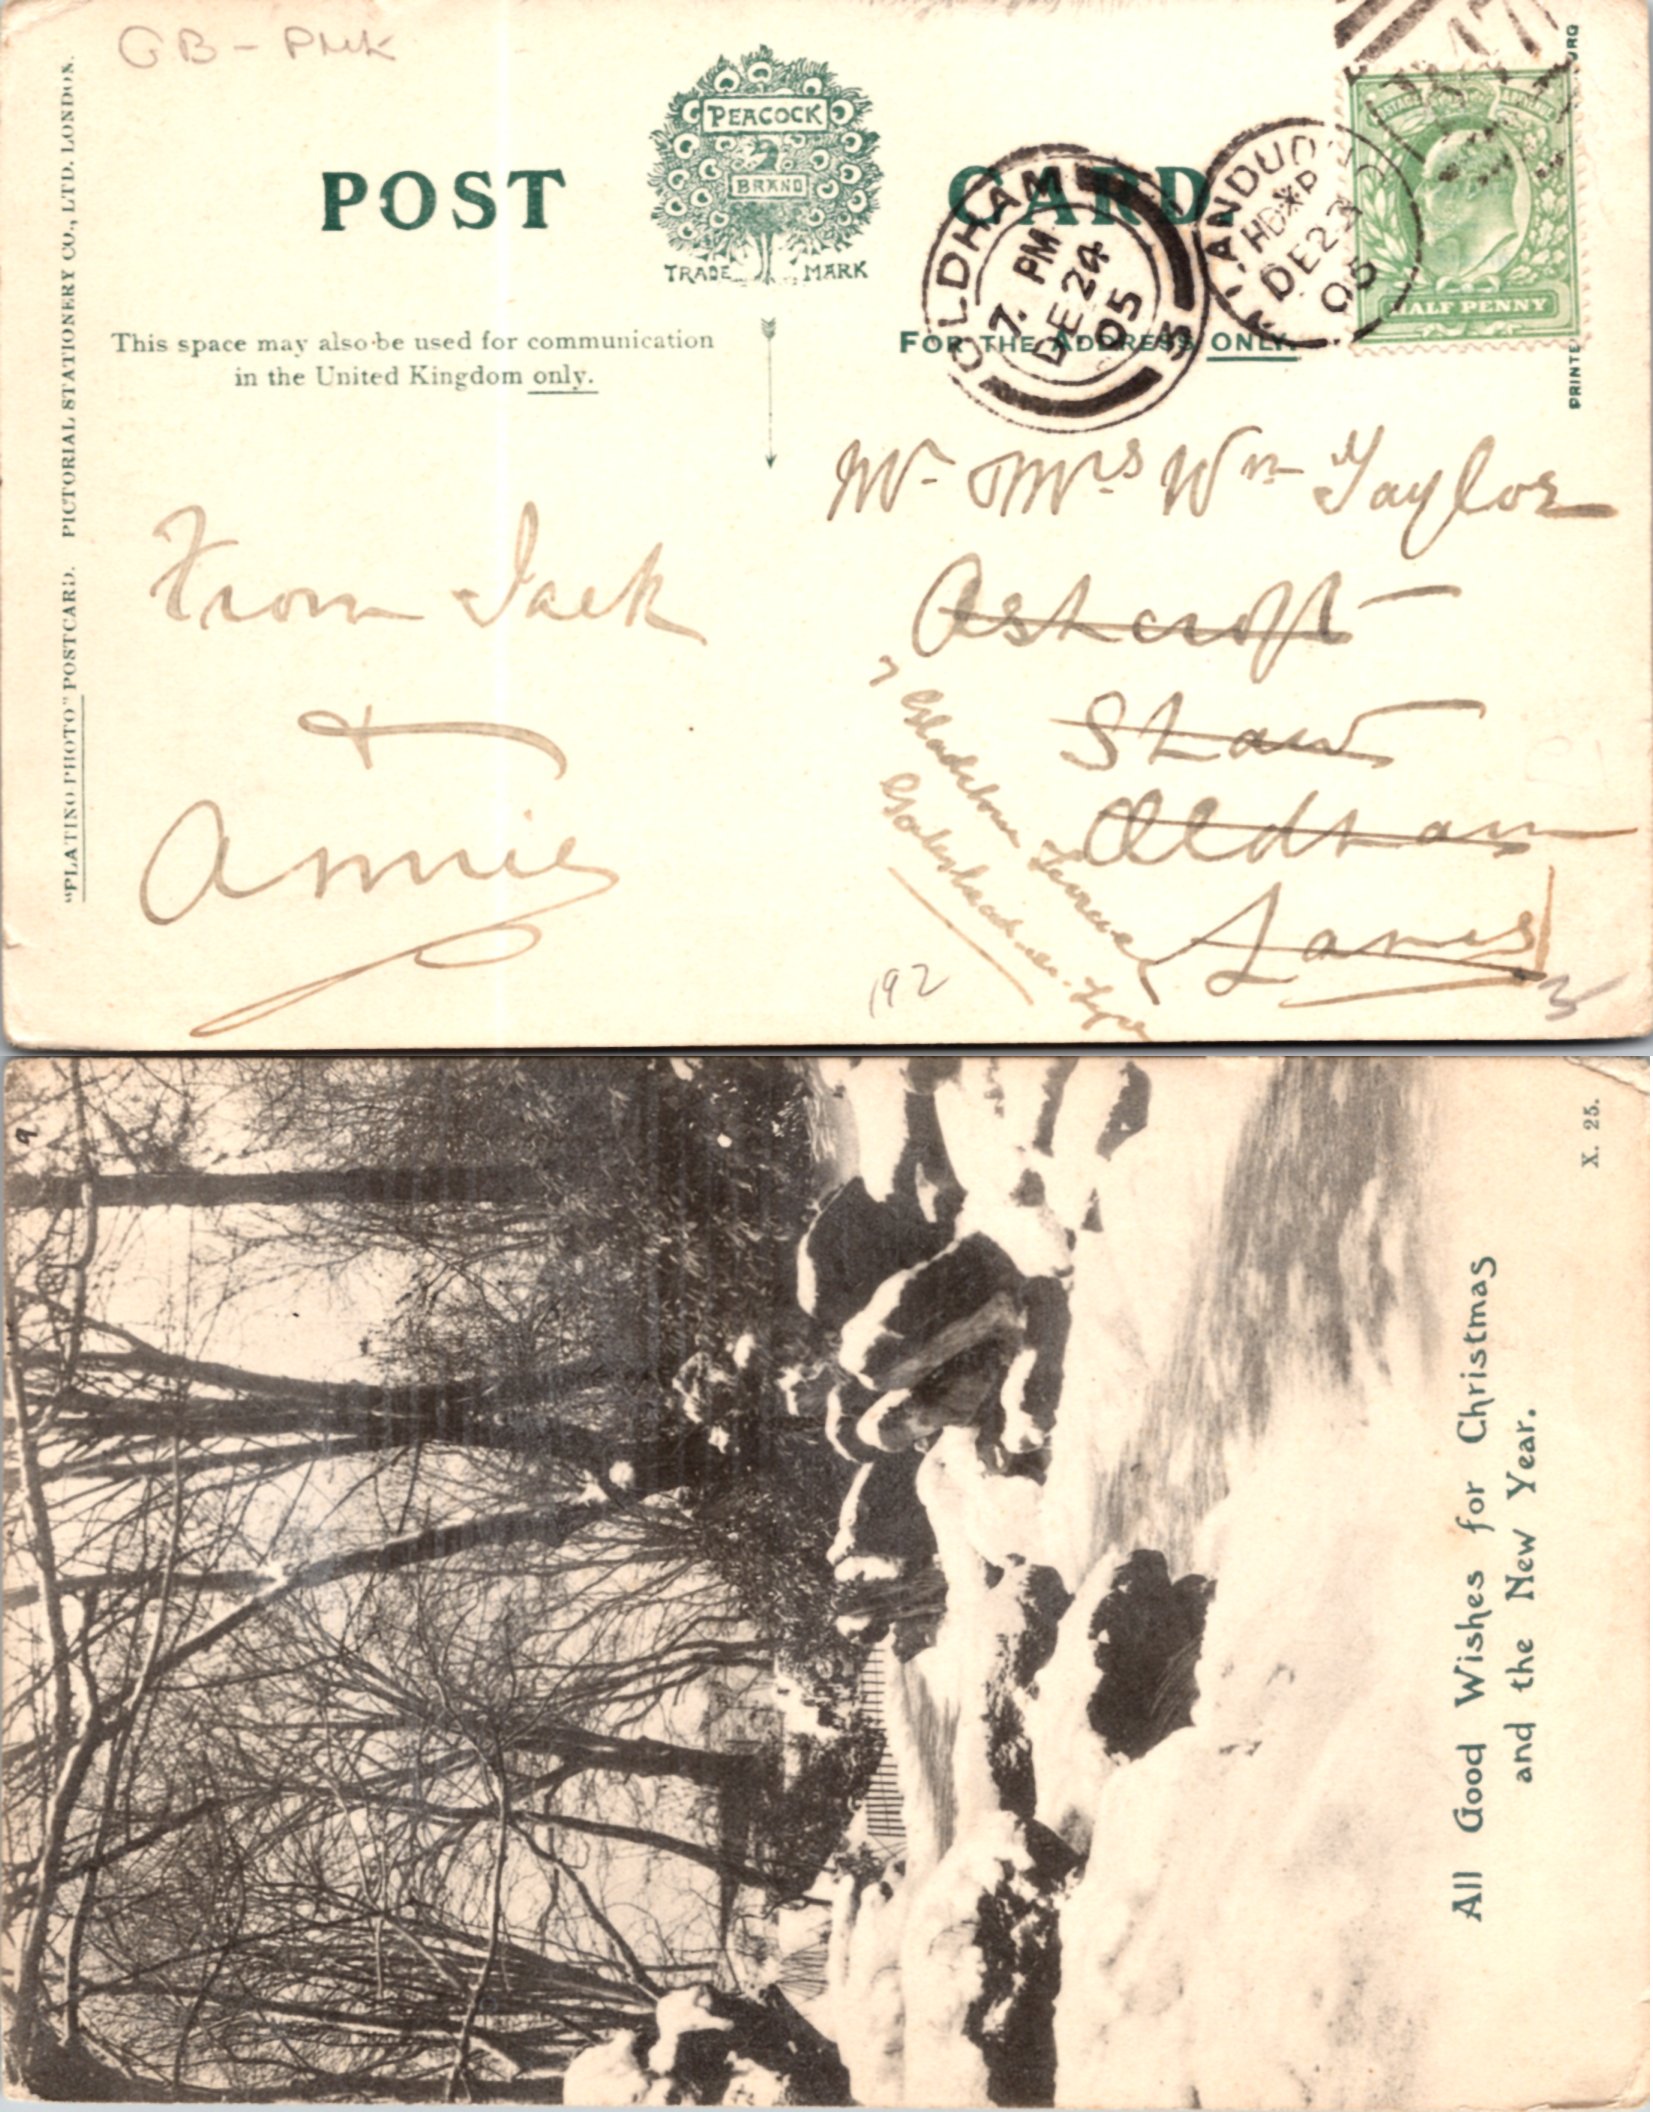 GB - PMK
"PLATINO PHOTO" POSTCARD. PICTORIAL STATIONERY CO., LTD. LONDON.
POST CARD.
PEACOCK
BRAND
TRADE MARK
This space may also be used for communication
in the United Kingdom only.
FOR THE ADDRESS ONLY.
OLDHAM
7. PM
DE 24
05
LLANDUDNO
DE 23
05
HALF PENNY
From Jack
+
Annie
Mr. & Mrs Wm Taylor
Ashcroft
Shaw
Oldham
Lancs
7 Gladstone Terrace
Gateshead-on-Tyne
192
All Good Wishes for Christmas
and the New Year.
X. 25.